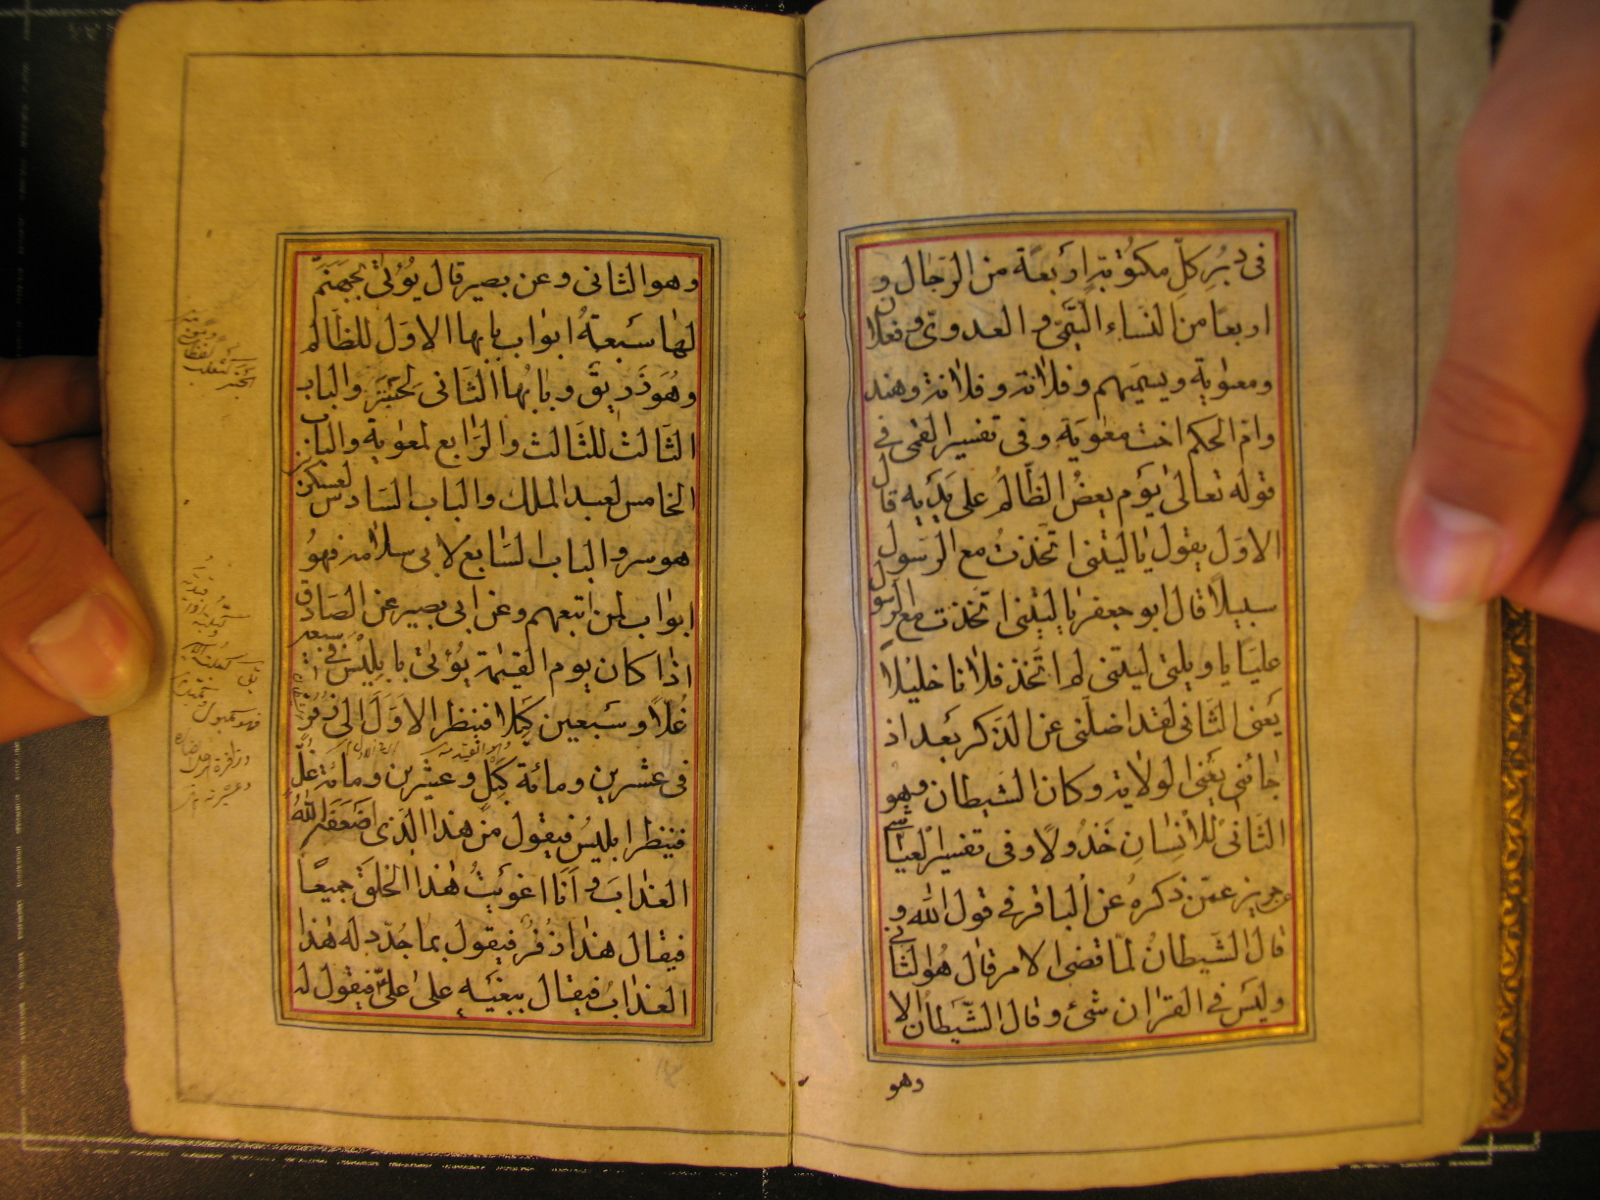 فی دبر کلّ مکتوبة اربعة من الرّجال و
اربعًا من النساء التّیمیّ و العدویّ و فعلان
و معٰویة و یسمّیهم و فلانة و فلانة و هند
و امّ الحکم اخت معٰویة و فی تفسیر القمی فی
قوله تعالی یَوم یعضّ الظّالم علی یَدَیه قال
الاوّل یقول یا لیتنی اتّخذت مع الرّسول
سبیلًا قال ابو جعفر یا لیتنی اتّخذت مع الرّسول
علیّا یا ویلتی لیتنی لم اتّخذ فلانا خلیلًا
یَعنی الثانی لقد اضلّنی عن الذّکر بَعد اذ
جاءنی یَعنی الولایة و کان الشیطان و هو
الثّانی للانسان خذولًا و فی تفسیر العیّاشی
عن حریز عمّن ذکرهُ عن الباقر فی قول اللّه و
قال الشّیطانُ لمّا قضی الامر قال هُو الثانی
و لیسَ فی القرٰان شیٔ و قال الشّیطانُ الا
وهو
و هو الثانی و عن بصیر قال یُؤتیٰ بجهنّم
لهٰا سَبعةُ ابوٰاب بابها الاوّل للظّالم
و هُو زریق و بابُها الثّانی لحبتر و الباب
الثّالث للثّالث و الرّابع لمعٰویة و الباب
الخامس لعبد الملک و الباب السّادس لعسکر بن
هوسر و الباب السّابع لابی سلامة فهُو
ابوٰاب لمن اتبعهم و عن ابی بصیر عن الصّادق
اذا کان یوم القیٰمة یُؤتیٰ بابلیسَ فی سبعین
غُلًّا و سَبعین کَبلا فینظر الاوّل الی زفر
فی عشرین و مائة کَبل و عشرین و مائة غلّ
فینظر ابلیسُ فیقول من هٰذا الّذی اضعفه اللّٰهُ
العذابَ و اَنَا اغویتُ هٰذا الخلقَ جمیعًا
فیقال هٰذا زفر فیقول بما جُدّد له هٰذا
العذابُ فیقال ببغیه علی علیّ فیقول له